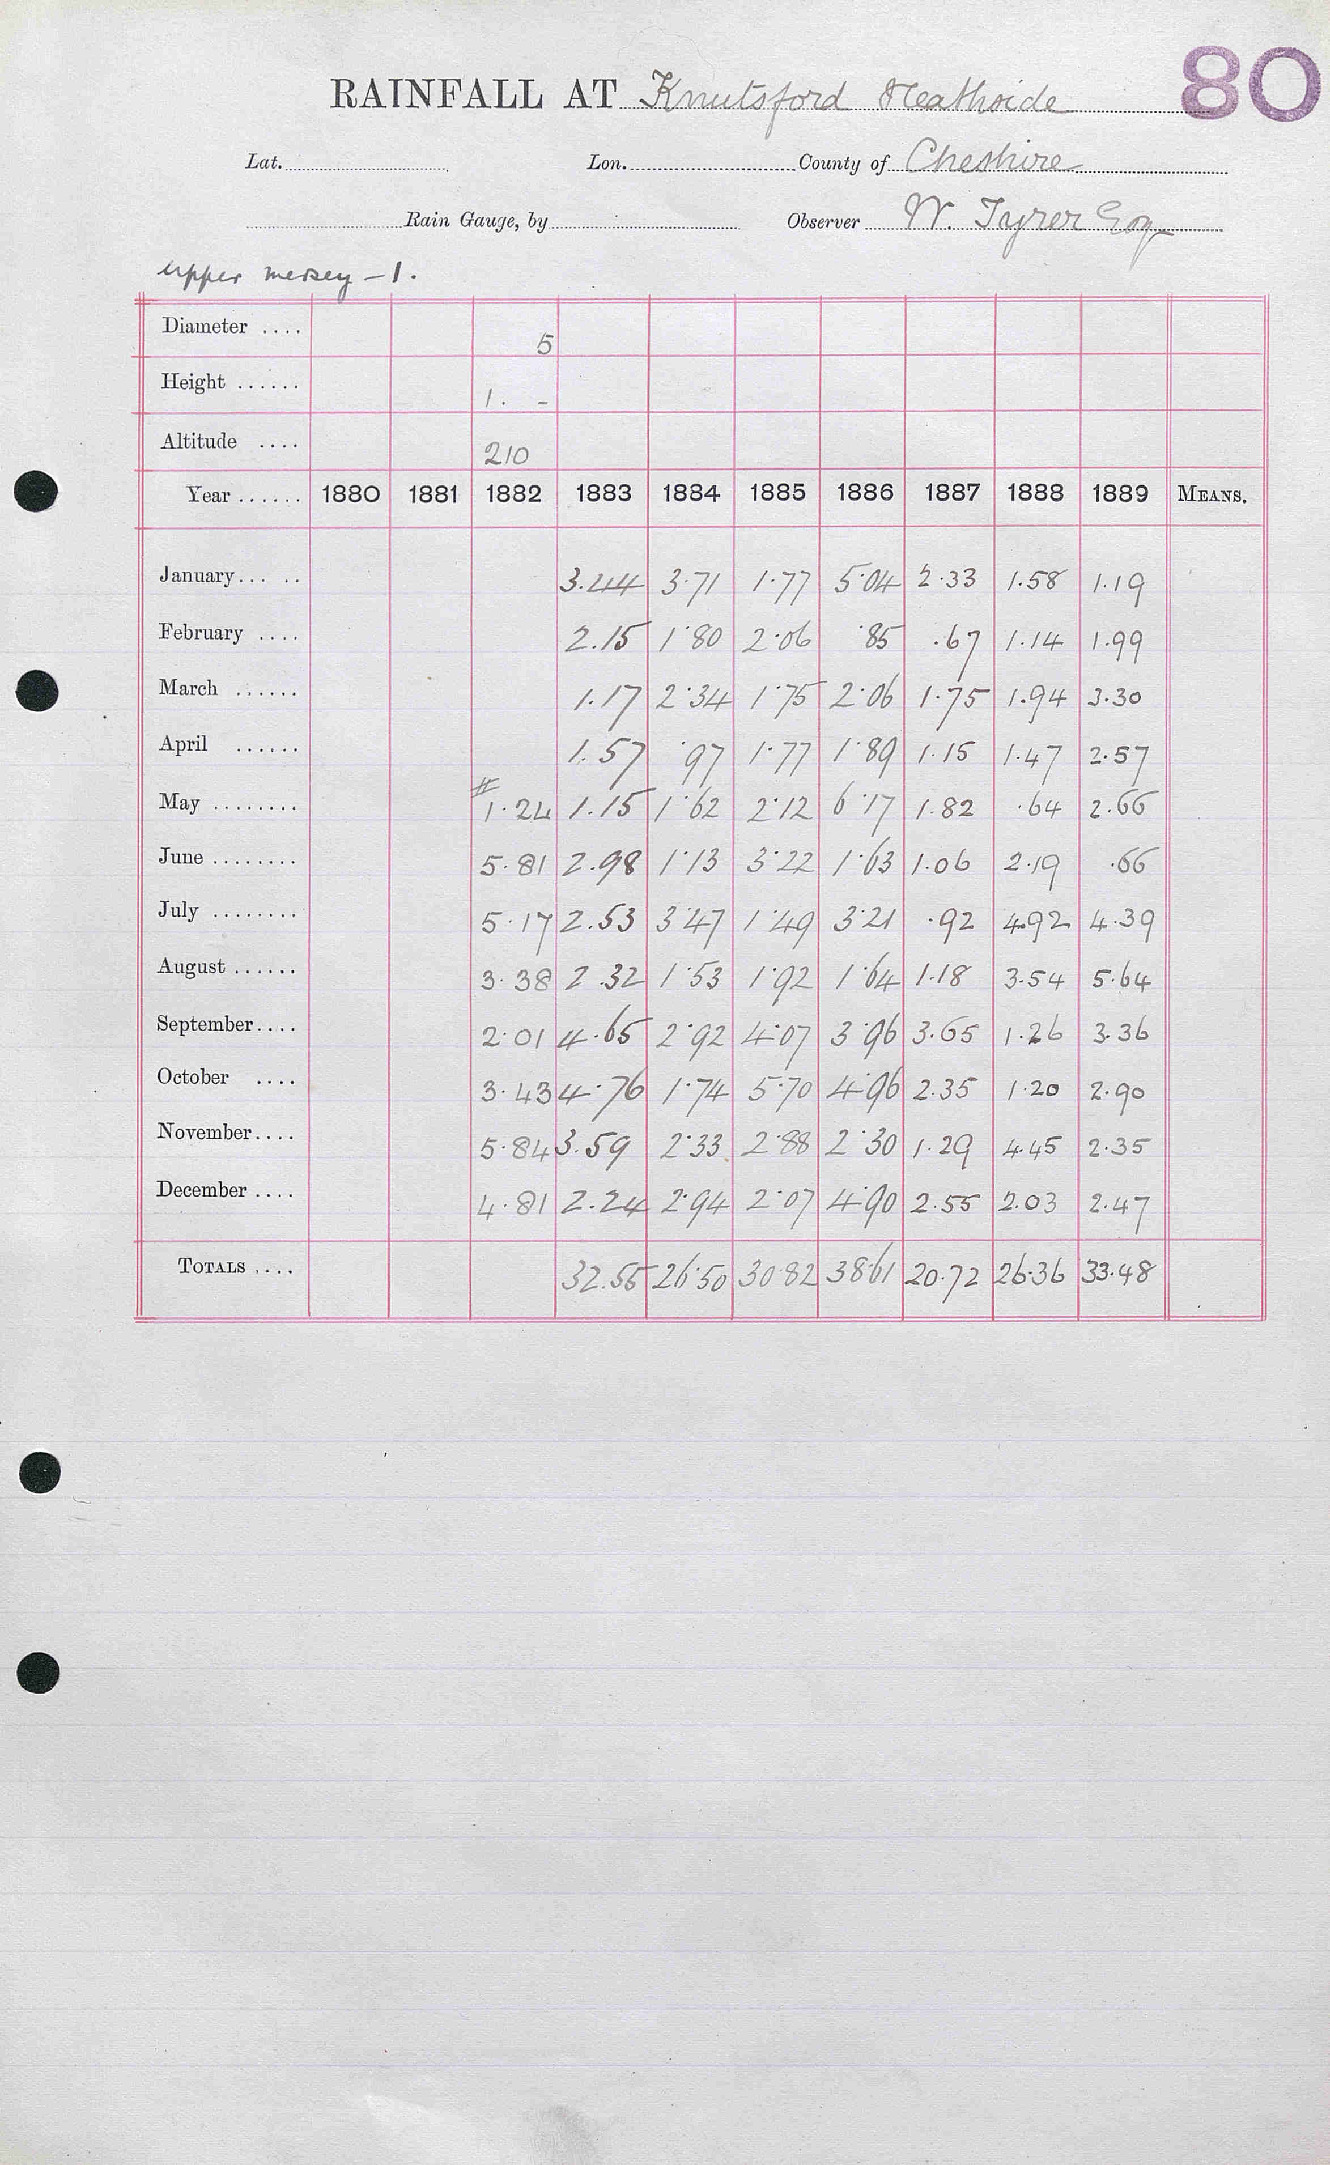 80
RAINFALL AT Knutsford Heathside
Lat. Lon. County of Cheshire
Rain Gauge, by Observer W. Tayrer Esq
Upper Mersey - 1.
Diameter .... 5
Height ...... 1. -
Altitude .... 210
Year ...... 1880 1881 1882 1883 1884 1885 1886 1887 1888 1889 MEANS.
January... .. 3.44 3.71 1.77 5.04 2.33 1.58 1.19
February .... 2.15 1.80 2.06 .85 .67 1.14 1.99
March ...... 1.17 2.34 1.75 2.06 1.75 1.94 3.30
April ...... 1.57 .97 1.77 1.89 1.15 1.47 2.57
May ........ # 1.24 1.15 1.62 2.12 6.17 1.82 .64 2.66
June ........ 5.81 2.98 1.13 3.22 1.63 1.06 2.19 .66
July ........ 5.17 2.53 3.47 1.49 3.21 .92 4.92 4.39
August ...... 3.38 2.32 1.53 1.92 1.64 1.18 3.54 5.64
September.... 2.01 4.65 2.92 4.07 3.96 3.65 1.26 3.36
October .... 3.43 4.76 1.74 5.70 4.96 2.35 1.20 2.90
November.... 5.84 3.59 2.33 2.88 2.30 1.29 4.45 2.35
December .... 4.81 2.24 2.94 2.07 4.90 2.55 2.03 2.47
TOTALS .... 32.55 26.50 30.82 38.61 20.72 26.36 33.48